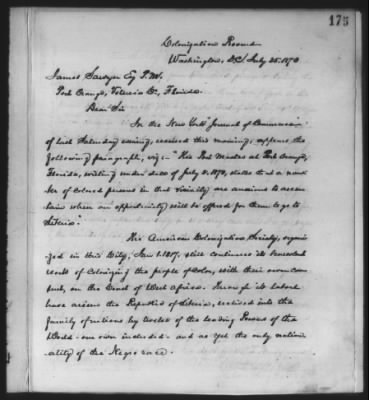 175
Colonization Rooms
Washington, D.C. July 25. 1870
James Sawyer Esq P.M.
Port Orange, Volusia Co., Florida.
Dear Sir
In the New York "Journal of Commerce"
of last Saturday evening, received this morning, appears the
following paragraph, viz:- "The Post Master at Port Orange,
Florida, writing under date of July 5. 1870, states that a num
ber of colored persons in that vicinity are anxious to ascer
tain when an opportunity will be offered for them to go to
Liberia."
The American Colonization Society, organi
zed in this City, Jany 1. 1817, still continues its benevolent
work of Colonizing the people of Color, with their own con
sent, on the Coast of West Africa. Through its labors
have arisen the Republic of Liberia, received into the
family of nations by twelve of the leading Powers of the
World - our own included - and as yet the only nation
ality of the Negro race.